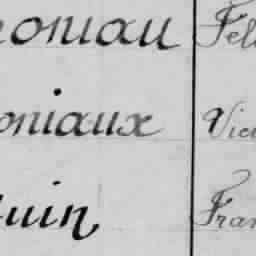 roniau Feli
oniaux Vic
quin Fran